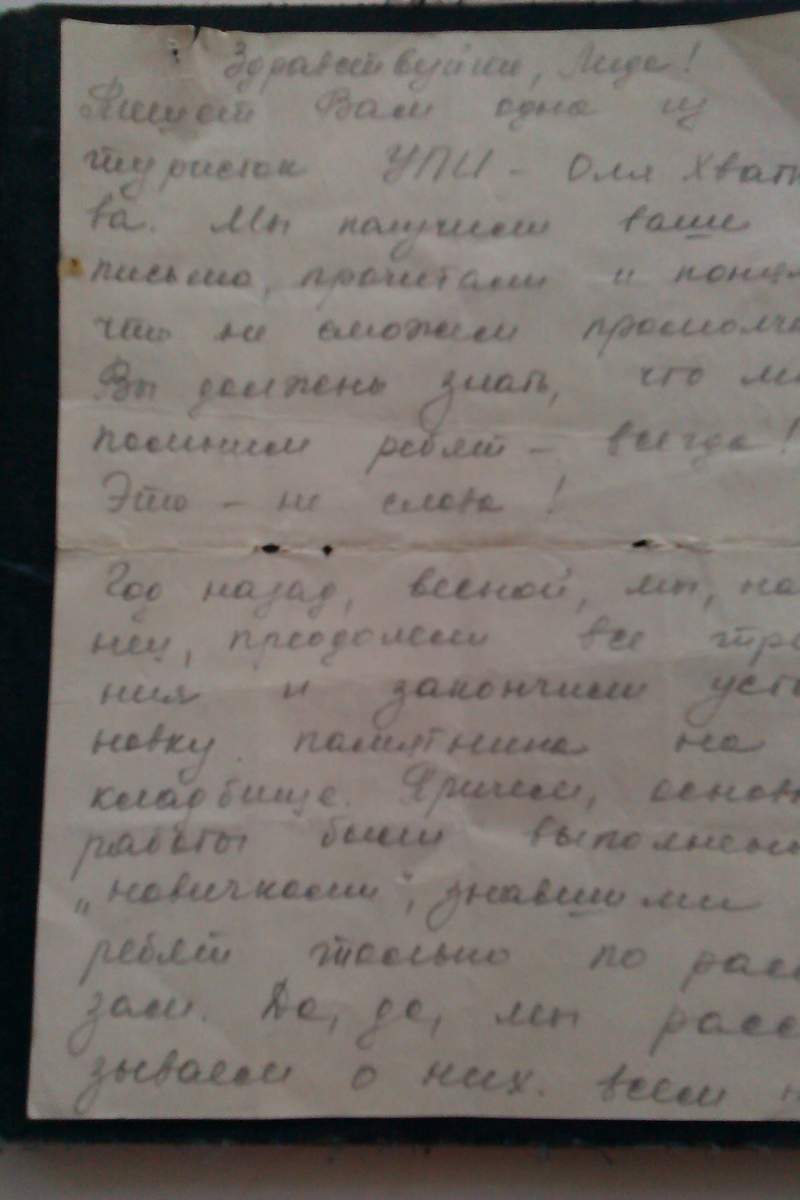 Здравствуйте, Лида!
Пишет Вам одна из
туристок УПИ - Оля Хват
ва. Мы получили ваше
письмо, прочитали и поня
что не сможем промолч
Вы должны знать, что мы
помним ребят - всегда!
Это - не слова!
Год назад, весной, мы, на
нец, преодолели все тре
ния и закончили уста
новку памятника на
кладбище. Причем, основ
работы были выполнен
„новичками“, знавшими
ребят только по расс
зам. Да, да, мы расс
зываем о них всем н